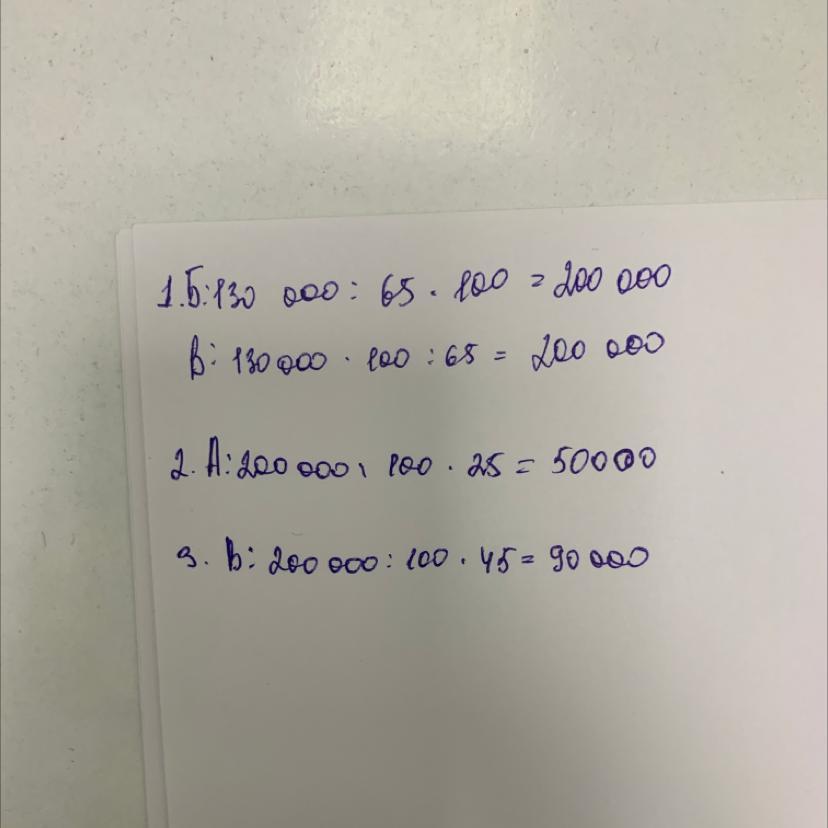 1. Б: 130 000 : 65 · 100 = 200 000
В: 130000 · 100 : 65 = 200 000
2. А: 200 000 : 100 · 25 = 50000
3. В: 200 000 : 100 · 45 = 90 000